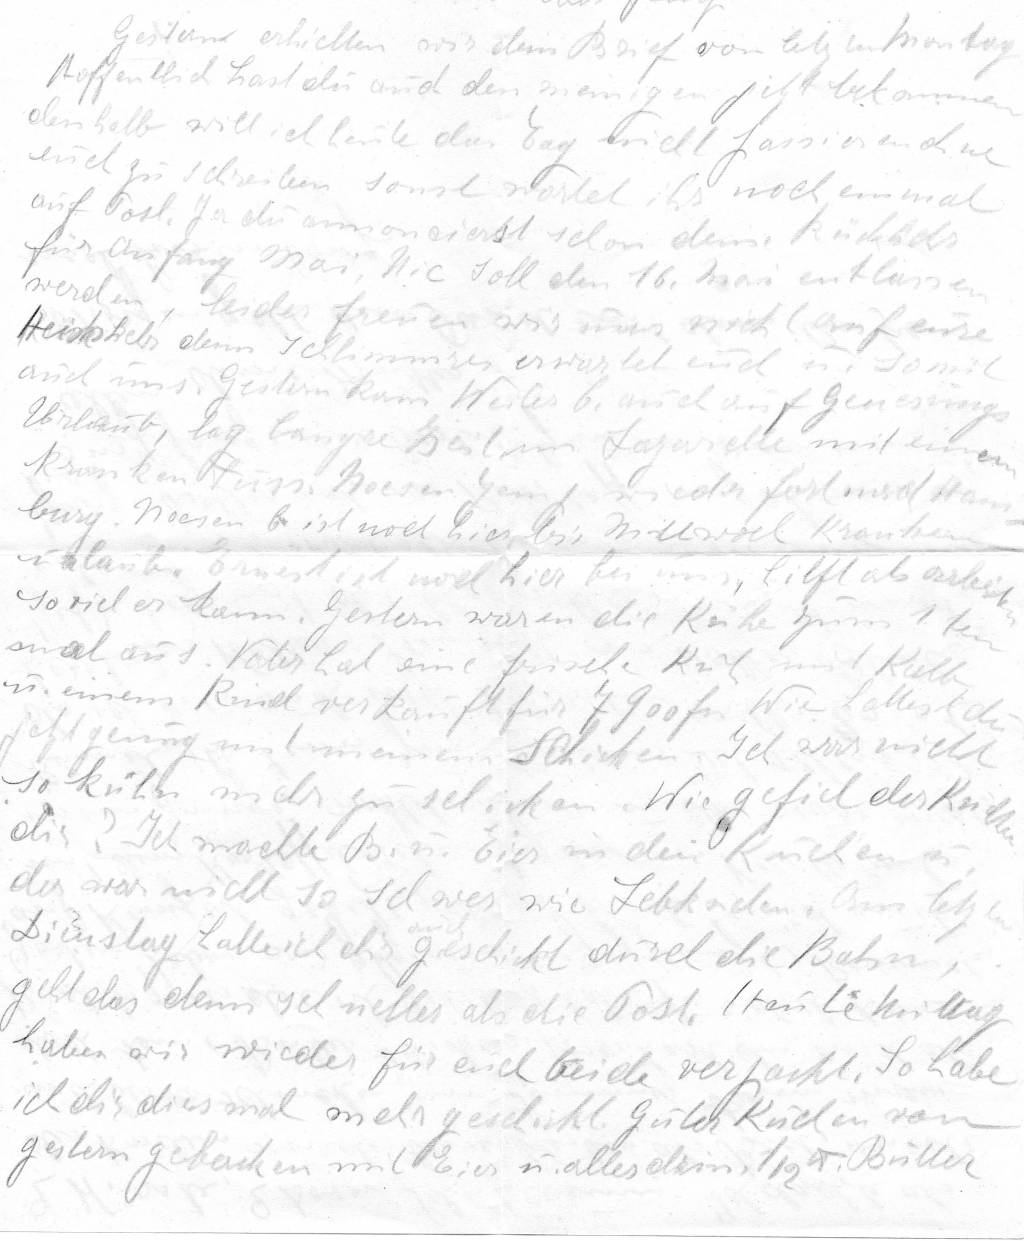 Gestern erhielten wir dein Brief von letzten Montag
Hoffentlich hast du auch den meinigen jetzt bekommen
deshalb will ich heute den Tag nicht passieren ohne
euch zu schreiben sonst wartet ihr noch einmal
auf Post. Ja du annoncierst schon deine Rückkehr
für Anfang Mai, Nic soll den 16. Mai entlassen
werden, leider freuen wir uns nicht auf eure
Heimkehr denn Schlimmres erwartet euch u. somit
auch uns. Gestern kam Weiler b. auch auf Genesungs
Urlaub, lag lange Zeit im Lazarette mit einem
kranken Fuss. Noesen Jemp wieder fort nach Ham
burg. Noesen b ist noch hier bis Mittwoch Kranken
urlaub. Ernest ist noch hier bei uns, hilft als arbeiten
so viel er kann. Gestern waren die Kühe zum 1ten
mal aus. Vater hat eine frische Kuh mit Kalb
u. einem Rind verkauft für 7900 fr Wie hattest du
jetzt genug mit meinem Schicken. Ich war nicht
so kühn mehr zu schicken. Wie gefiel der Kuchen
dir? Ich machte B. u. Eier in den Kuchen u,
der war nicht so schwer wie Lebkuchen. Am letzten
Dienstag hatte ich dir auch geschickt durch die Bahn,
geht das denn schneller als die Post. Heute Mittag
haben wir wieder für euch beide verpackt. So habe
ich dir dies mal mehr geschickt. Guter Kuchen von
gestern gebacken mit Eier u. alles drin. 1/2 Butter